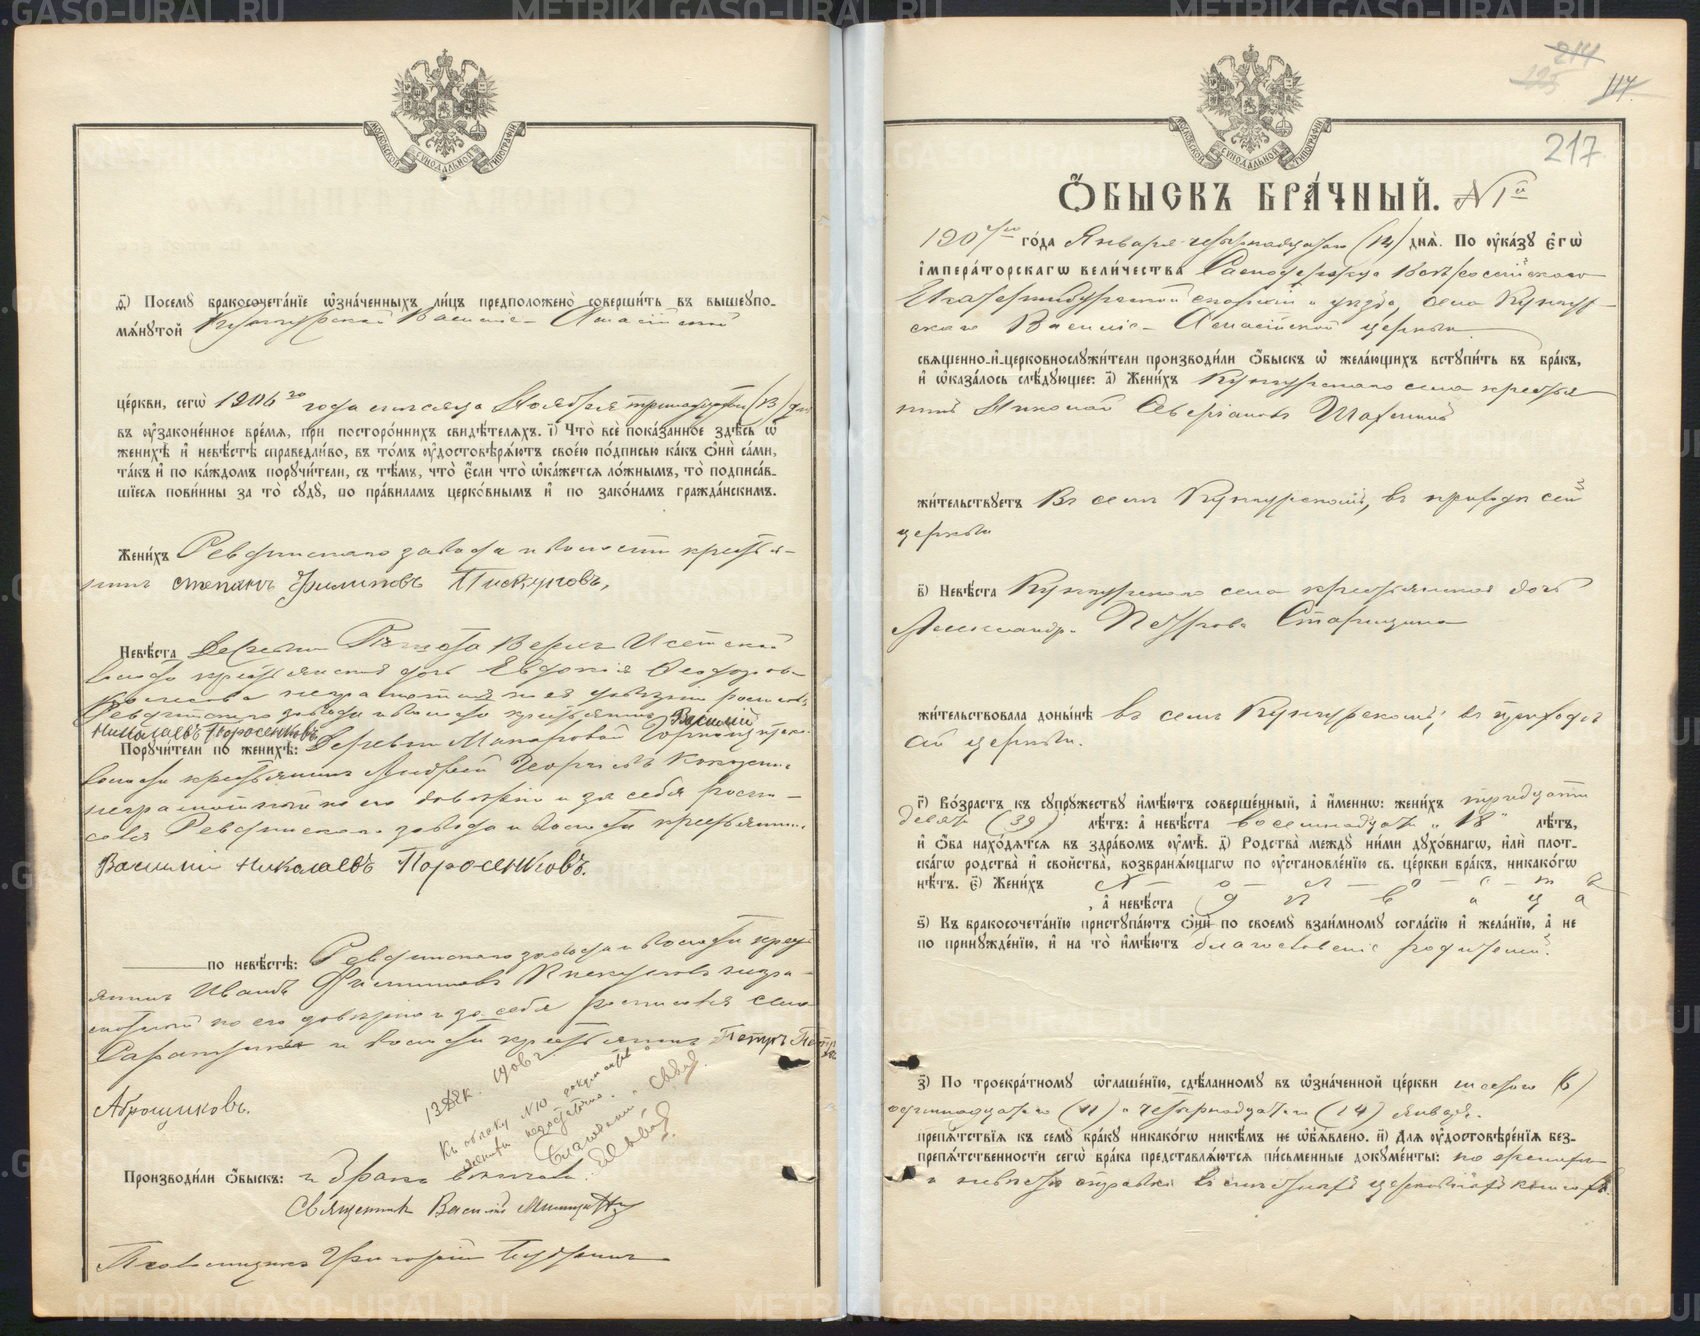 METRIKI.GASO-URAL.RU
МОСКОВСКОЙ СУНОДАЛЬНОЙ ТИПОГРАФІИ
ѳ҃) Посемꙋ бракосочета́нїе ѡ҆зна́ченныхъ ли́цъ предположено̀ соверши́ть въ вышеупо-
мѧ́нутой Кунгурской Василіе-
це́ркви, сегѡ̀ 1906 го года мѣсяца Ноября тринадцатаго (13) дня
въ ᲂу҆зако́ненное вре́мѧ, при посторо́ннихъ свидѣ́телѧхъ. і҃) Что̀ всѐ пока́занное здѣ́сь ѡ҆
женихѣ̀ и҆ невѣ́стѣ справедли́во, въ то́мъ ᲂу҆достовѣрѧ́ютъ свое́ю по́дписью ка́къ ѻ҆нѝ са́ми,
та́къ и҆ по ка́ждомъ порꙋчи́тели, съ тѣ́мъ, что̀ є҆́сли что̀ ѡ҆ка́жетсѧ ло́жнымъ, то̀ подписа́в-
шїесѧ пови́нны за то̀ сꙋдꙋ̀, по пра́виламъ церко́внымъ и҆ по зако́намъ гражда́нскимъ.
Жени́хъ Ревдинскаго завода и волости крестья-
нинъ Степанъ Филиповъ Пискуновъ,
Невѣ́ста Деревни Верхъ Исетской
волости крестьянская дочь Евдокія Ѳеодорова
неграмотная по ея довѣрію росписался
Ревдинскаго завода и волости крестьянинъ Василій
Николаевъ Поросенковъ
Порꙋчи́тели по женихѣ̀: Деревни Макаровой
волости крестьянинъ Андрей
неграмотный по его довѣрію и за себя роспи-
сался Ревдинскаго завода и волости крестьянинъ
Василій Николаевъ Поросенковъ.
по невѣ́стѣ: Ревдинскаго завода и волости кресть-
янинъ Иванъ Филипповъ Пискуновъ негра-
мотный по его довѣрію и за себя росписался села
и волости крестьянинъ Петръ
Аброщиковъ.
13 Дек. 1906 г
Къ обыску №10 документы
Производи́ли ѻ҆́быскъ:
Священникъ Василій
Псаломщикъ Григорій
214
125
117
217
Ѻ҆́БЫСКЪ БРА́ЧНЫЙ. № 1й
1907 го го́да Января четырнадцатаго (14) днѧ̀. По ᲂу҆ка́зꙋ є҆гѡ̀
і҆мпера́торскагѡ вели́чества Самодержца Всероссійскаго
Екатеринбургской епархіи и уѣзда, села Кунгур-
скаго Василіе- церкви
свѧщенно-и҆-церковнослꙋжи́тели производи́ли ѻ҆́быскъ ѡ҆ жела́ющихъ вступи́ть въ бра́къ,
и҆ ѡ҆каза́лось слѣ́дꙋющее: а҃) Жени́хъ Кунгурскаго села крестья-
нинъ Николай Северіановъ
жи́тельствꙋетъ въ селѣ Кунгурскомъ, въ приходѣ сей
церкви
в҃) Невѣ́ста Кунгурскаго села крестьянская дочь
Александра Петрова Старицина
жи́тельствовала доны́нѣ въ селѣ Кунгурскомъ, въ приходѣ
сей церкви.
г҃) Во́зрастъ къ сꙋпрꙋ́жествꙋ и҆мѣ́ютъ соверше́нный, а҆ и҆́меннѡ: жени́хъ тридцати
девяти (39) лѣ́тъ: а҆ невѣ́ста восемнадцати „18“ лѣ́тъ,
и҆ ѻ҆́ба нахо́дѧтсѧ въ здра́вомъ ᲂу҆мѣ̀. д҃) Родства̀ междꙋ̀ ни́ми дꙋхо́внагѡ, и҆лѝ плот-
ска́гѡ родства̀ и҆ сво́йства, возбранѧ́ющагѡ по ᲂу҆становле́нїю св. це́ркви бра́къ, никако́гѡ
нѣ́тъ. є҃) Жени́хъ х - о - л - о - с - т - ъ
, а҆ невѣ́ста д ѣ в и ц а
ѕ҃) Къ бракосочета́нїю пристꙋпа́ютъ ѻ҆нѝ по своемꙋ̀ взаи́мномꙋ согла́сїю и҆ жела́нїю, а҆ не
по принꙋжде́нїю, и҆ на то̀ и҆мѣ́ютъ благословеніе родителей.
з҃) По троекра́тномꙋ ѡ҆глаше́нїю, сдѣ́ланномꙋ въ ѡ҆зна́ченной це́ркви шестого (6)
одиннадцатаго (11) и четырнадцатаго (14) Января.
препѧ́тствїѧ къ семꙋ̀ бра́кꙋ никако́гѡ никѣ́мъ не ѡ҆бꙗ́влено. и҃) Длѧ ᲂу҆достовѣре́нїѧ без-
препѧ́тственности сегѡ̀ бра́ка представлѧ́ютсѧ пи́сьменные докꙋме́нты: по женихѣ
и невѣстѣ справки въ метрическихъ церковныхъ книгахъ.